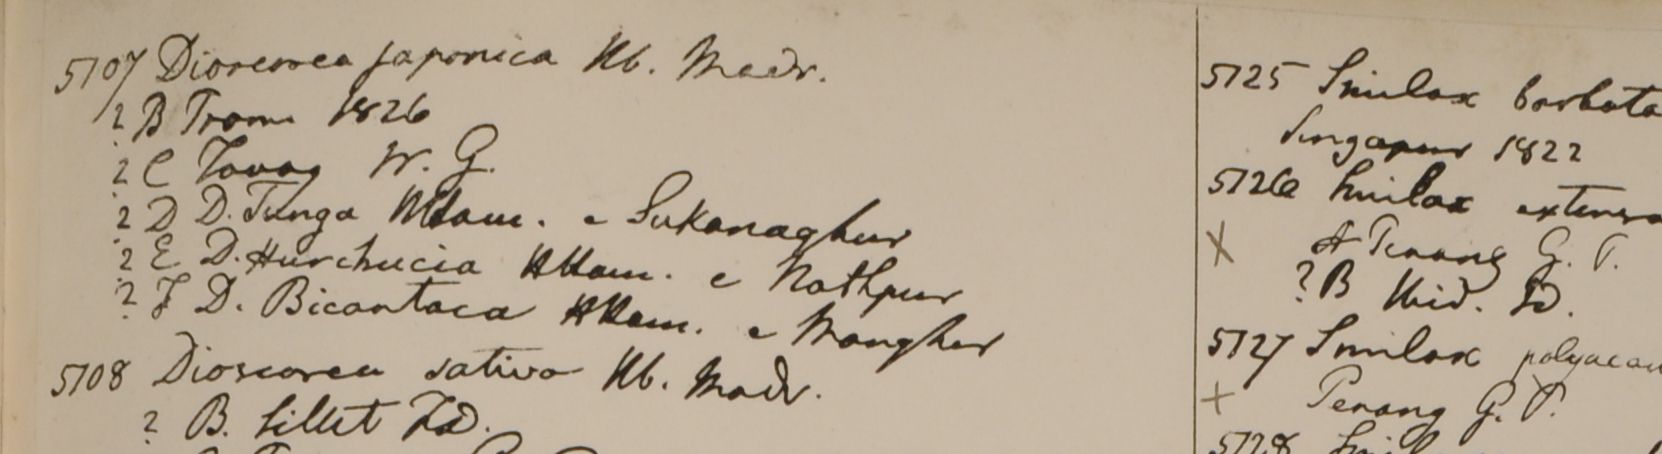 5107 Dioscorea japonica Hb. Madr.
? B Prome 1826
? C Tavoy W. G.
? D D. Tunga HHam. e Sukanaghur
? E D. Hurchucia HHam. e Nathpur
? F D. Bicantaca HHam. e Mongher
5108 Dioscorea sativa Hb. Madr.
? B. Sillet FD.
5125 Smilax barbata
Singapur 1822
5126 Smilax extensa
X A Penang G. P.
? B Ibid.
5127 Smilax polyacan
+ Penang G. P.
5128